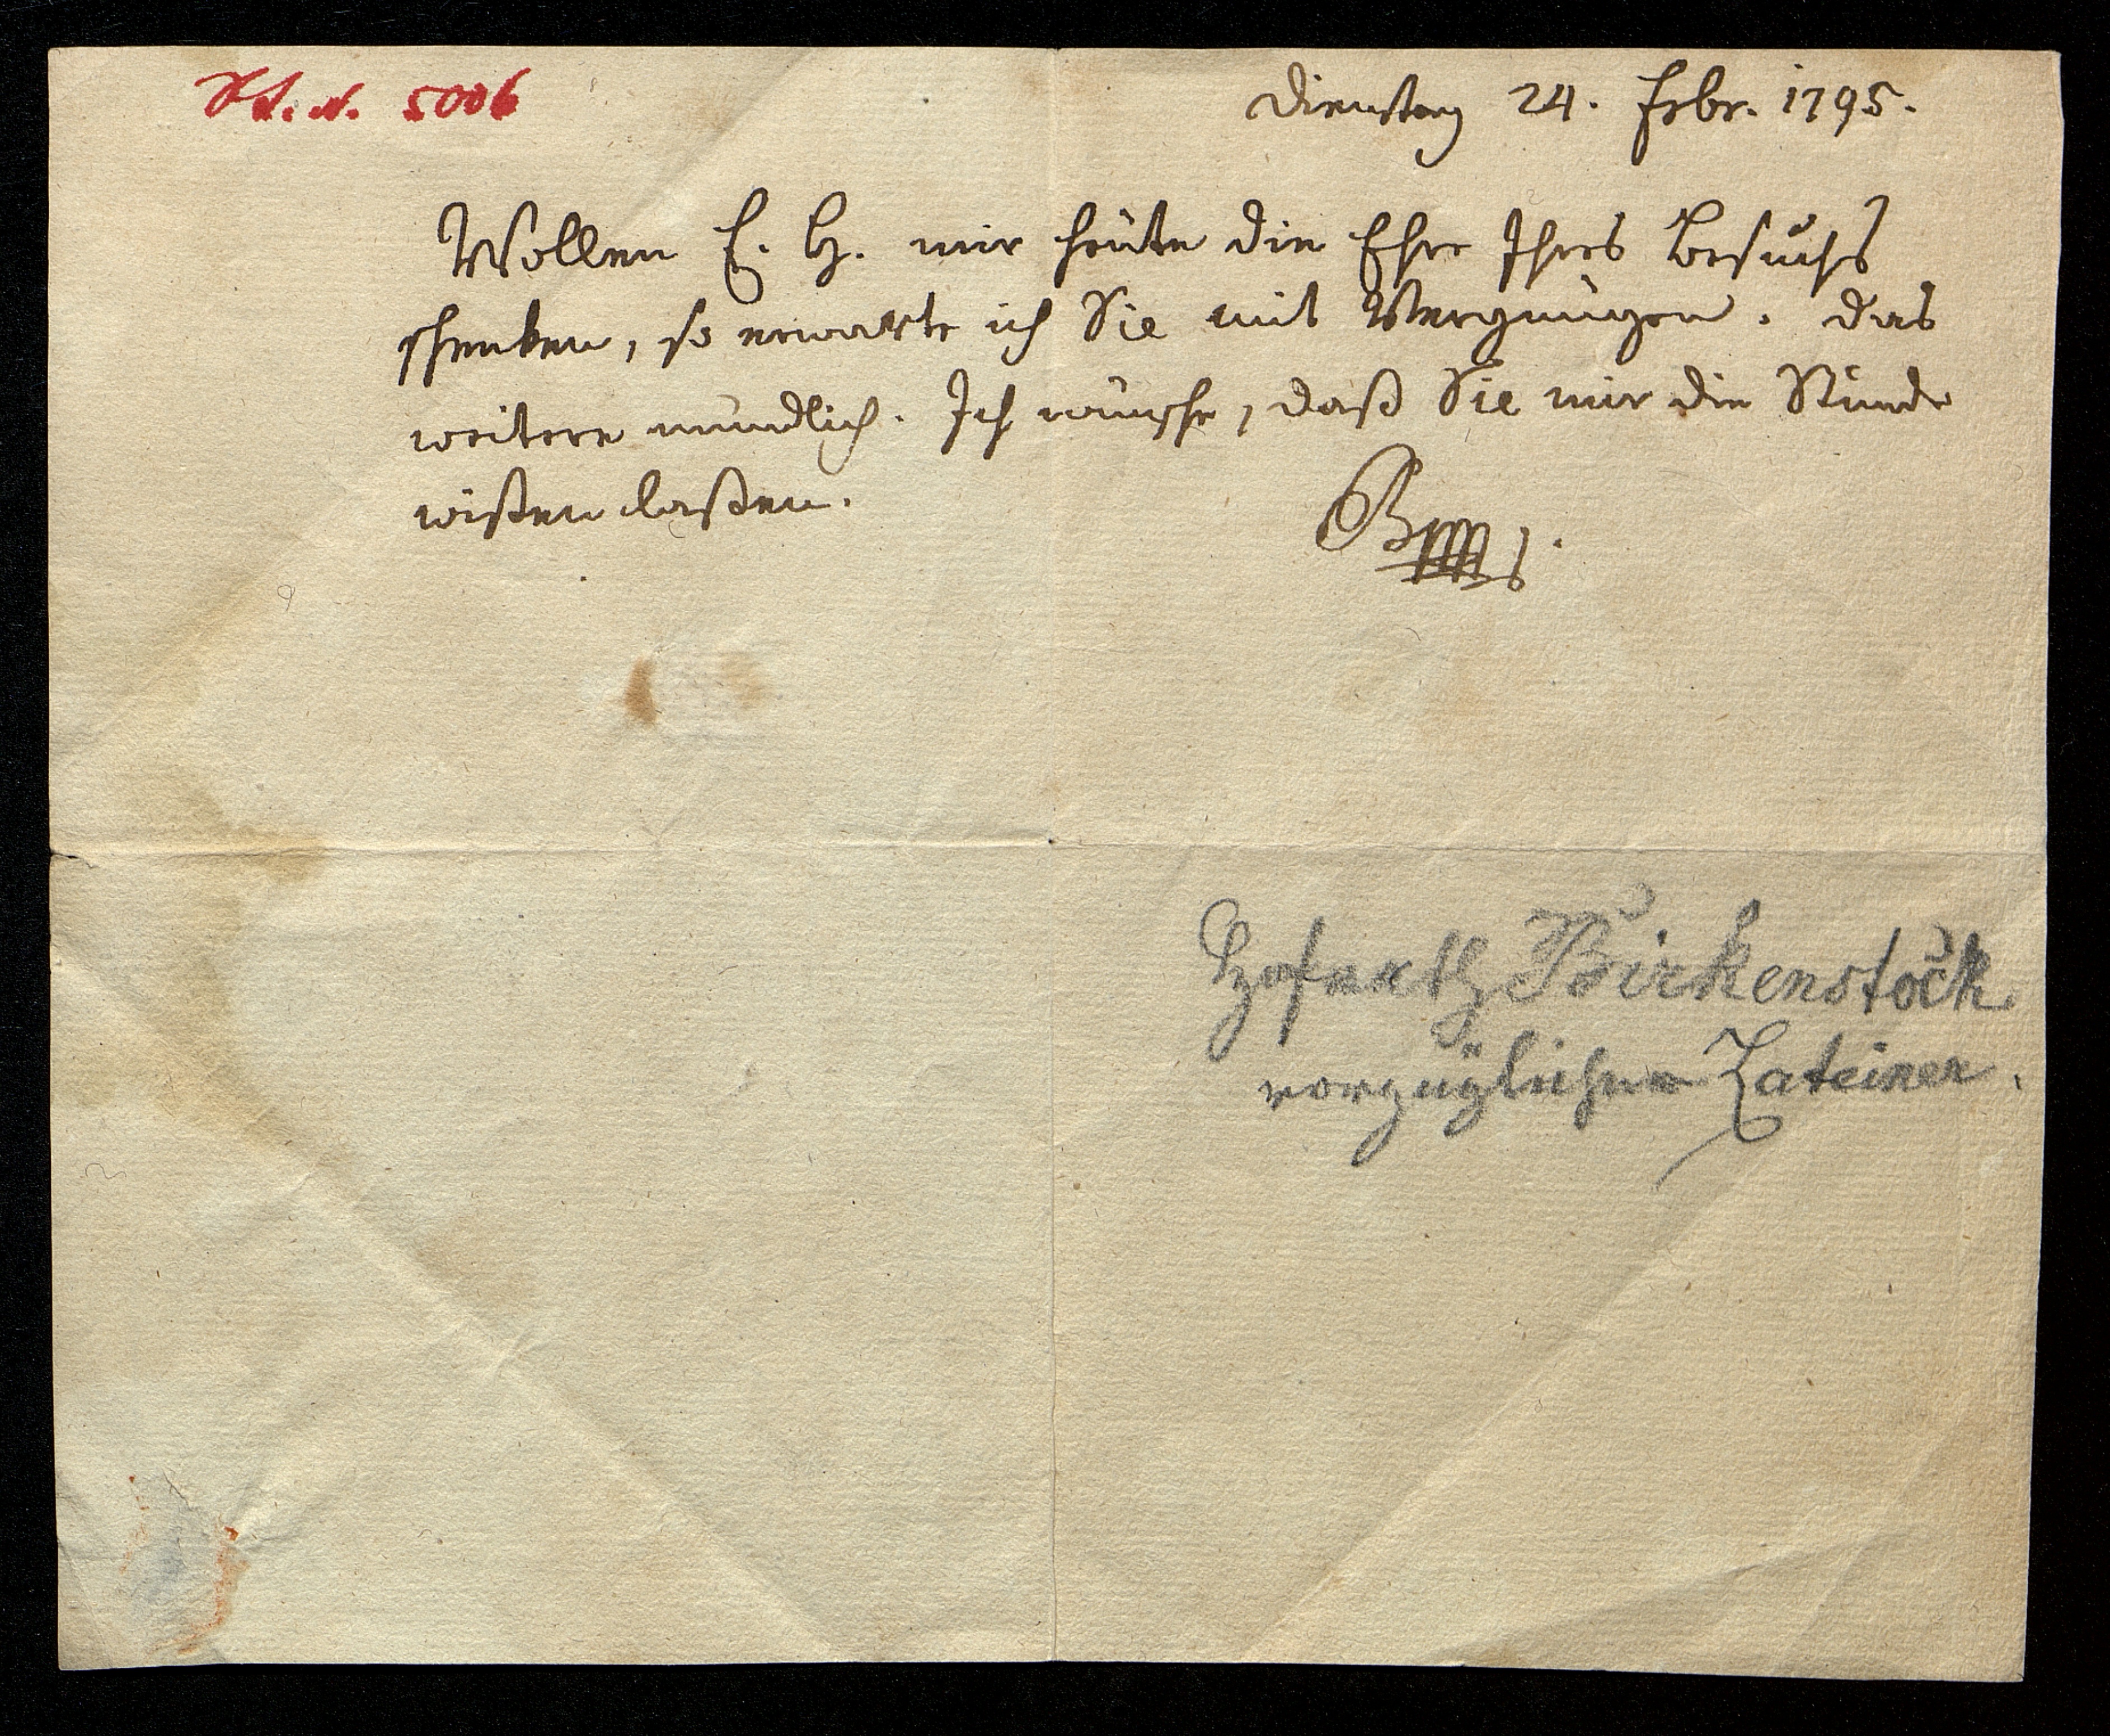 H. I. N. 5006
Dienstag 24. Febr. 1795.
Wollen E. H. mir heute die Ehre Ihres Besuchs
schenken, so erwarte ich Sie mit Vergnügen. Das
weitere mündlich. Ich wünsche, daß Sie mir die Stunde
wißen laßen.
Hofrath Birkenstock
vorzüglicher Lateiner.